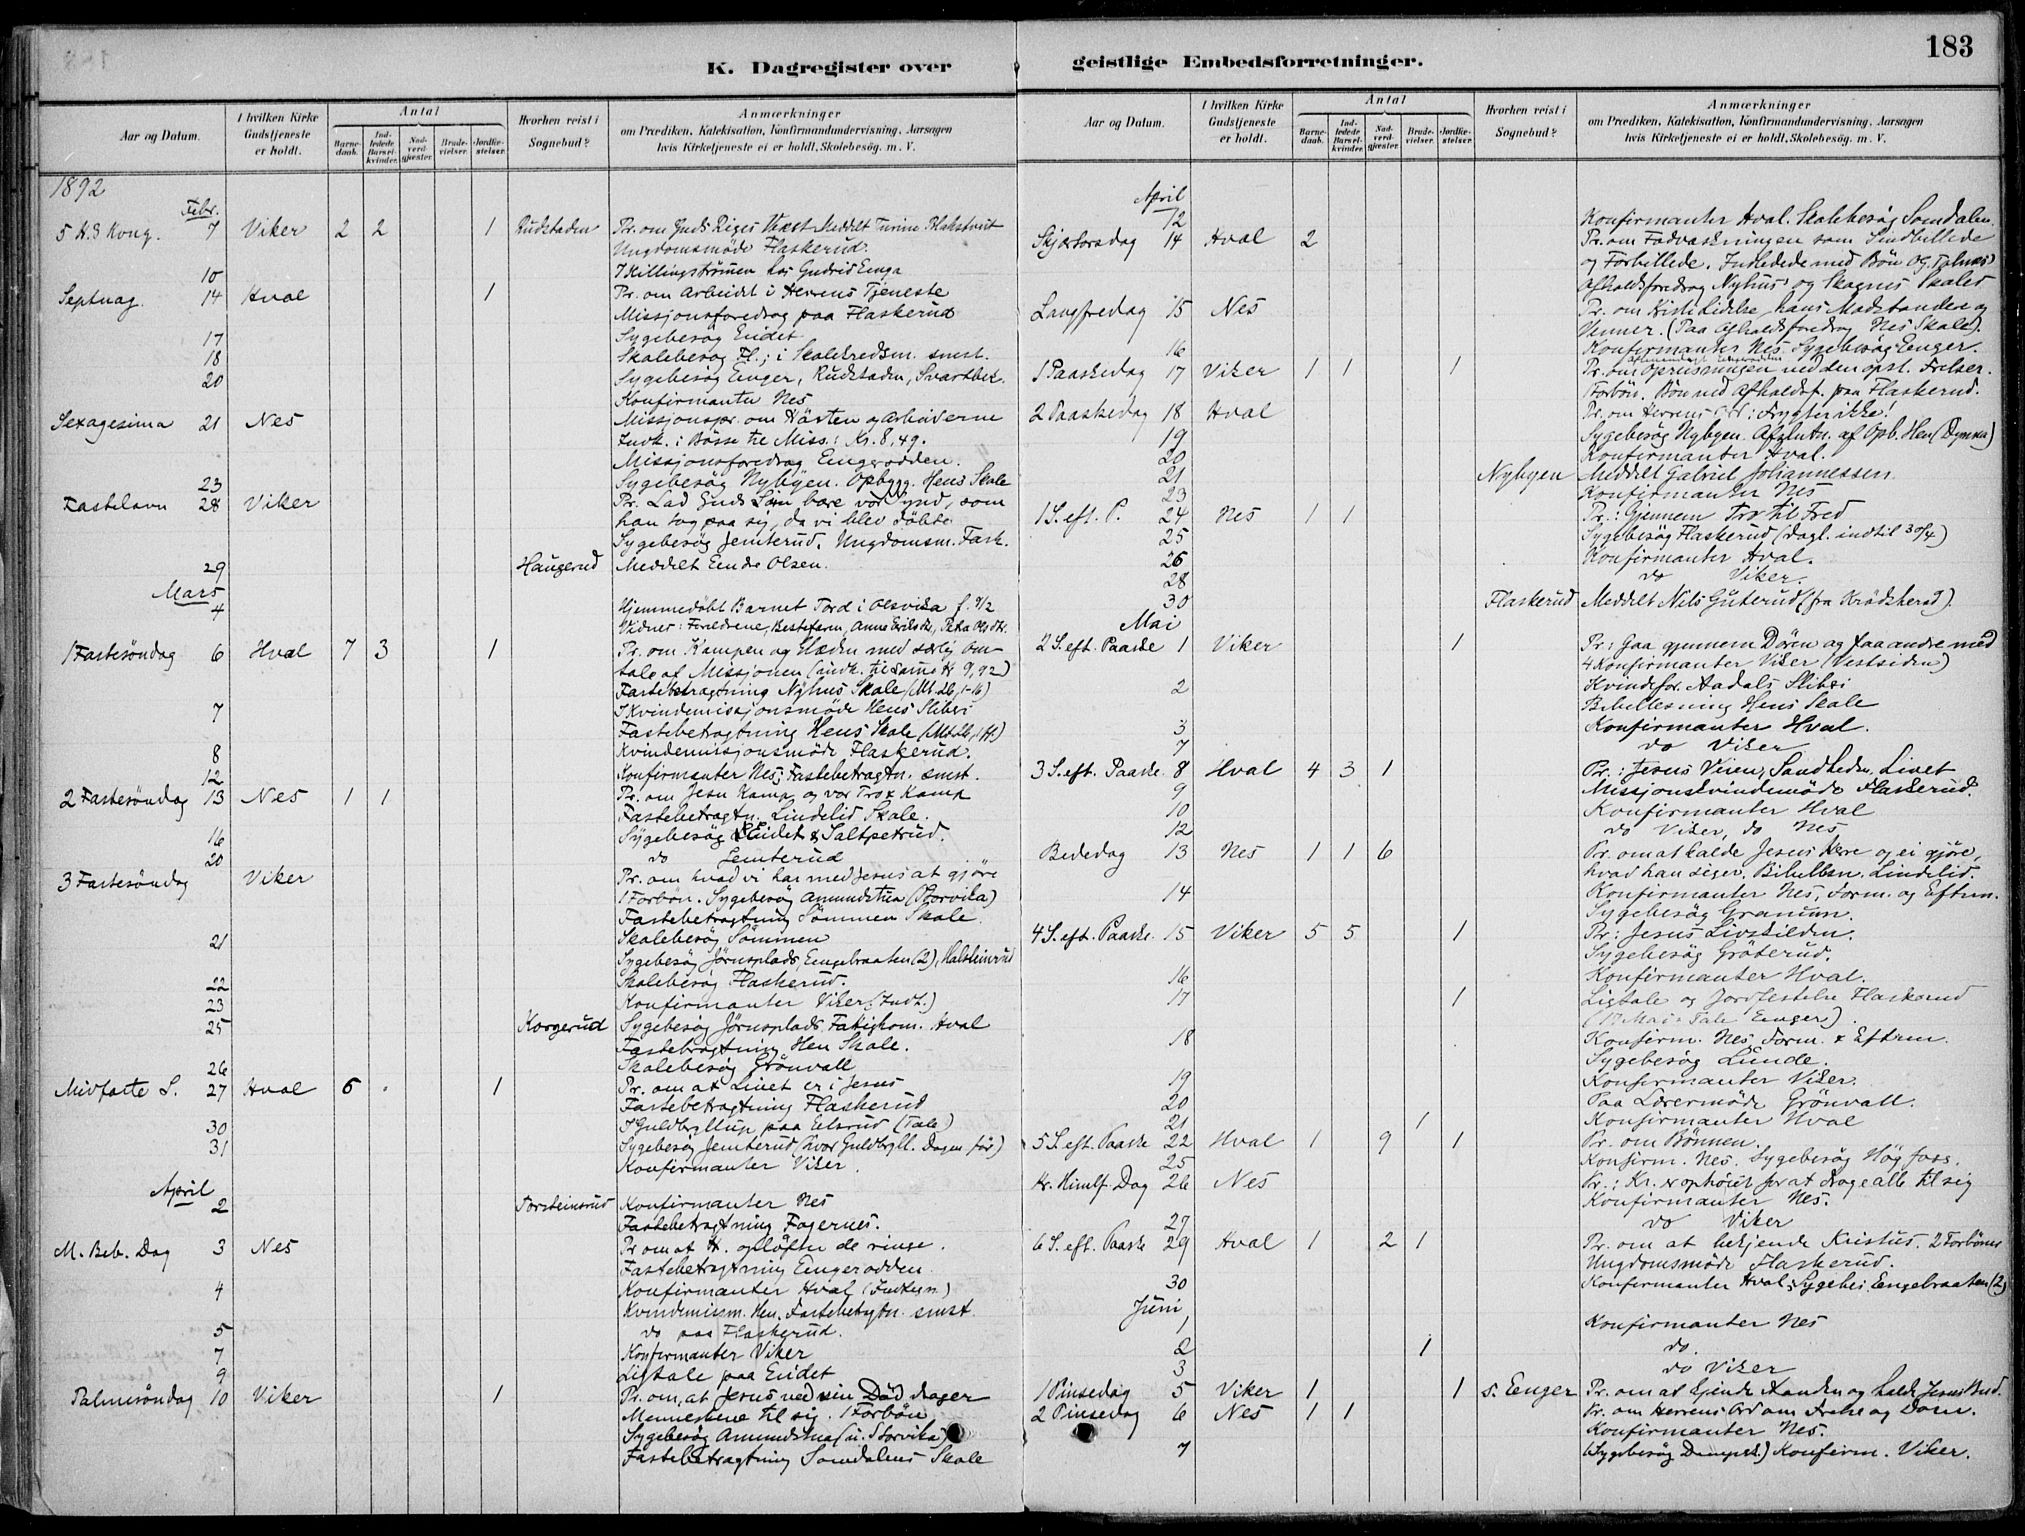 183
K. Dagregister over geistlige Embedsforretninger.
Aar og Datum.
I hvilken Kirke Gudstjeneste er holdt.
Antal
Barnedaab.
Indledede Barselkvinder.
Nadverdgjæster.
Brudevielser.
Jordfæstelser.
Hvorhen reist i Sognebud?
Anmærkninger
om Prædiken, Katekisation, Konfirmandundervisning, Aarsagen
hvis Kirketjeneste ei er holdt, Skolebesøg. m. V.
1892
Febr.
5 H. 3 Kong. 7 Viker 2 2 1 Rudstaden Pr. om Guds Riges Væxt. Meddelt Turine
Ungdomsmöde Flaskerud.
10 hos Gudrid Eenga
Septuag. 14 Hval 1 Pr. om Arbeidet i Herrens Tjeneste
Missjonsforedrag paa Flaskerud
17 Sygebesög Eeidet
18 Skolebesög Fl.; i Skolekredsm. smst.
20 Sygebesög Eenger, Rudstaden, Svartbek.
Konfirmanter Nes
Sexagesima 21 Nes Missjonspr. om Hösten og Arbeiderne
Indk. i Bösse til Miss.: Kr. 8,49.
Missjonsforedrag Eengerodden.
23 Sygebesög Nybyen. Opbygg. Hens Skole
Fastelavn 28 Viker Pr. Lad Guds Sön bære vor Synd, som
han tog paa sig, da vi blev döbte
Sygebesög Jemterud. Ungdomsm. Flask.
29 Haugerud Meddelt Eendre Olsen.
Mars
4 Hjemmedöbt Barnet Tord i Olsvika f. 9/2
Vidner: Forældrene, Bestefaren, Anne
1 Fastesöndag 6 Hval 7 3 1 Pr. om Kampen og Glæden med særlig Om-
tale af Missjonen (indk. til samme Kr 9,92)
Fastebetragtning Nyhus Skole (Mt. 26, 1-16)
7 I Kvindemissjonsmöde Hens Sliberi
Fastebetragtning Hens Skole
8 Kvindemissjonsmöde Flaskerud.
12 Konfirmanter Nes; Fastebetragtn. smst.
2 Fastesöndag 13 Nes 1 1 Pr. om Jesu Kamp og vor Tros Kamp
Fastebetragtn. Lindelid Skole.
16 Sygebesög Eeidet & Saltpetrud.
20 do Jemterud
3 Fastesöndag Viker Pr. om hvad vi har med Jesus at gjöre
1 Forbön. Sygebesög Amundstua (Storvika)
Fastebetragtning Sömmen Skole.
21 Skolebesög Sömmen
Sygebesög Jörnsplads, Eengebraaten (2), Halsteinrud
22 Skolebesög Flaskerud.
23 Konfirmanter Viker. (Indt.)
25 Korgerud Sygebesög Jörnsplads, Fattigkom. Hval
Fastebetragtning Hen Skole.
26 Skolebesög Grönvall
Midfaste S. 27 Hval 6 1 Pr. om at Livet er i Jesus
Fastebetragtning Flaskerud
30 I Guldbryllup paa Eelsrud (Tale)
31 Sygebesög Jemterud (hvor Guldbryll. Dagen för)
Konfirmanter Viker.
April
2 Torsteinsrud Konfirmanter Nes
Fastebetragtning Fagernes.
M. Beb. Dag 3 Nes Pr om at H. oplöfter de ringe.
Fastebetragtning Eengerodden.
4 Konfirmanter Hval (Indkom.)
Kvindemissm. Hen. Fastebetgtn. smst.
5 do paa Flaskerud.
7 Konfirmanter Viker
9 Ligtale paa Eeidet
Palmesöndag 10 Viker 1 Pr. om, at Jesus ved sin Död drager
Menneskene til sig. 1 Forbön
Sygebesög Amundstua (u. Storvika)
Fastebetragtning Somdalens Skole
Aar og Datum.
I hvilken Kirke Gudstjeneste er holdt.
Antal
Barnedaab.
Indledede Barselkvinder.
Nadverdgjæster.
Brudevielser.
Jordfæstelser.
Hvorhen reist i Sognebud?
Anmærkninger
om Prædiken, Katekisation, Konfirmandundervisning, Aarsagen
hvis Kirketjeneste ei er holdt, Skolebesög. m. V.
April
12 Konfirmanter Hval. Skolebesög Somdalen.
Skjærtorsdag 14 Hval 2 Pr. om Fodvaskningen som Sindbillede
og Forbillede. Indledede med Bön
Afholdsforedrag Nyhus og Skagnes Skoler
Langfredag 15 Nes Pr. om Kristi Lidelse, hans Modstandere og
Venner. (Paa Afholdsforedrag Nes Skole).
16 Konfirmanter Nes. Sygebesög Eenger.
1 Paaskedag 17 Viker 1 1 1 Pr. om Opreisningen ved den opst. Frelser.
Forbön. Bön ved Afholdsf. paa Flaskerud.
2 Paaskedag 18 Hval Pr. om Herrens Ord: Frygter ikke!
19 Sygebesög Nybyen. Afslutn. af Opb. Hen (Dynna)
20 Konfirmanter Hval.
21 Nybyen Meddelt Gabriel Johannessen
23 Konfirmanter Nes
1 S. eft. P. 24 Nes 1 1 Pr.: Gjennem Tro til Fred
25 Sygebesög Flaskerud (dagl. indtil 30/4)
26 Konfirmanter Hval.
28 do Viker.
30 Flaskerud Meddelt Nils Guterud (fra Krödsherad).
Mai
2 S. eft. Paaske 1 Viker 1 Pr: Gaa gjennem Dören og faa andre med
4 Konfirmanter Viker (Vestsiden)
2 Kvindefor. Aadals Sliberi
Bibellesning Hens Skole
3 Konfirmanter Hval.
7 do Viker
3 S. eft. Paaske. 8 Hval 4 3 1 Pr.: Jesus Veien, Sandheden, Livet
9 Missjonskvindemöde Flaskerud.
10 Konfirmanter Hval
12 do Viker, do Nes
Bededag 13 Nes 1 1 6 Pr. om at kalde Jesus Herre og ei gjöre,
hvad han siger. Bibellesn. Lindelid.
14 Konfirmanter Nes, Form. og Efterm.
Sygebesög Granum.
4 S. eft. Paaske. 15 Viker 5 5 1 Pr: Jesus Livskilden.
Sygebesög Gröterud.
16 Konfirmanter Hval.
17 1 Ligtale og Jordfestelse Flaskerud
(17 Mai-Tale Eenger).
18 Konfirm. Nes, Form. & Efterm.
Sygebesög Lunde.
19 Konfirmanter Viker.
20 Paa Lærermöde Grönvall.
21 1 Konfirmanter Hval
5 S. eft. Paaske 22 Hval 1 9 1 Pr. om Bönnen.
25 Konfirm. Nes. Sygebesög Hög foss.
Kr. Himlf. Dag 26 Nes Pr.: Kr. er ophöiet for at drage alle til sig
Konfirmanter Nes.
27 do Viker
6 S. eft. Paaske 29 Hval 1 2 1 Pr. om at bekjende Kristus. 2 Forbönner
Ungdomsmöde Flaskerud.
30 Konfirmanter Hval; Sygebes. Eengebraaten (2)
Juni
1 Konfirmanter Nes
2 1 do.
3 do Viker
1 Pinsedag 5 Viker 1 1 s. Eenger Pr. om at kjende Aanden og holde Jesu Bud.
2 Pinsedag 6 Nes 1 1 Pr. om Herrens Ord om Frelse og Dom.
Konfirmanter Nes.
7 (Sygebesög Dampsk.) Konfirm. Viker.